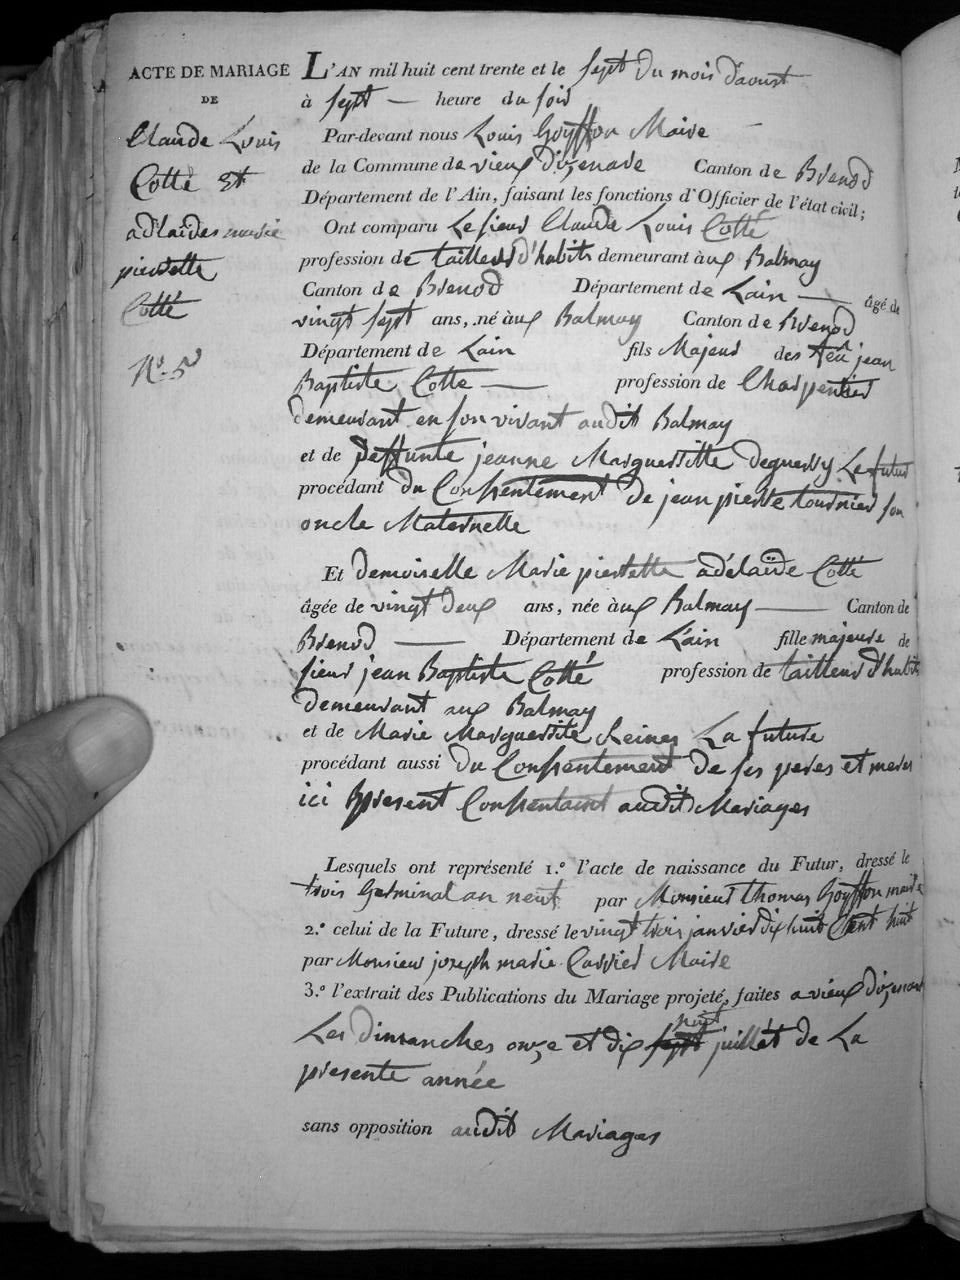 ACTE DE MARIAGE
DE
Claude Louis
Cotté Et
adélaides marie
pierrette
Cotté
N.o 5
L'AN mil huit cent trente et le sept du mois d'aoust
à sept — heure du soir
Par-devant nous Louis Goyffon Maire
de la Commune de vieux d'izenave Canton de Brenod
Département de l'Ain, faisant les fonctions d'Officier de l'état civil;
Ont comparu Le sieur Claude Louis Cotté
profession de tailleur d'habits demeurant àux Balmay
Canton de Brenod Département de Lain — âgé de
vingt sept ans, né àux Balmay Canton de Brenod
Département de Lain fils Majeur des feu jean
Baptiste Cotte — profession de Charpentier
demeurant en son vivant audit Balmay
et de Deffunte jeanne Marguerritte deguerry Le futur
procédant du Consentement de jean pierre tournier son
oncle Maternelle
Et demoiselle Marie pierrette adélaïde Cotté
âgée de vingt deux ans, née àux Balmay — Canton de
Brenod — Département de L'ain fille majeure de
sieur jean Baptiste Cotté profession de tailleur d'habits
demeurant aux Balmay
et de Marie Marguerite Reiney La future
procédant aussi du Consentement de ses peres et meres
ici present Consentaint audit Mariages
Lesquels ont représenté 1.º l'acte de naissance du Futur, dressé le
trois Germinal an neuf par Monsieur thomas Goyffon maire
2.º celui de la Future, dressé le vingt trois janvier dix huit Cent huit
par Monsieur joseph marie Carrier Maire
3.º l'extrait des Publications du Mariage projeté, faites a vieux d'izenave
neuf
Les dimanches onze et dix sept juillet de La
presente année
sans opposition audit Mariages